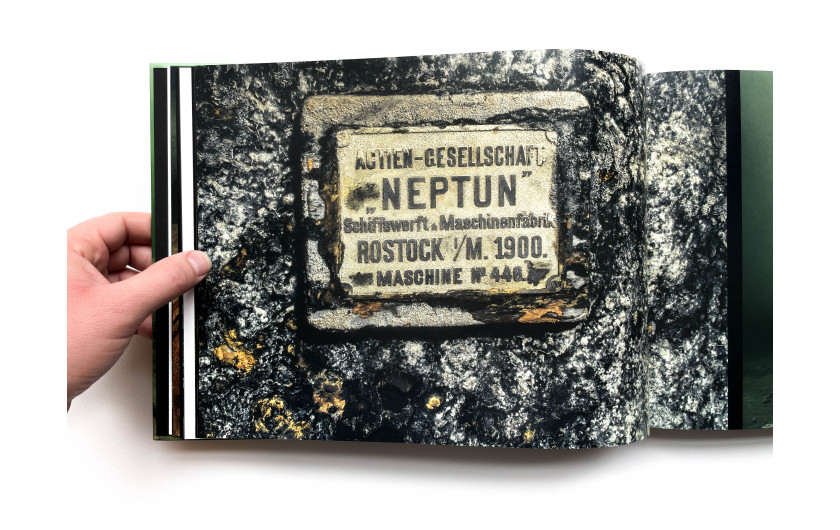 ACTIEN-GESELLSCHAFT
„NEPTUN”
Schiffswerft & Maschinenfabrik
ROSTOCK i/M. 1900.
MASCHINE Nº 446.